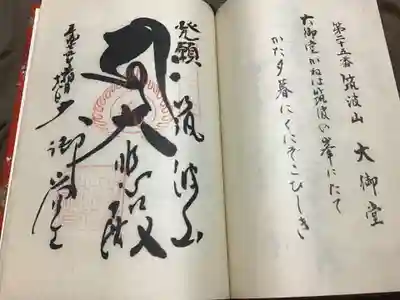 第二十五番 筑波山 大御堂
大御堂かねは筑波の峯にたて
かた夕暮にくにぞこひしき
発願
筑波山
大悲殿
大御堂